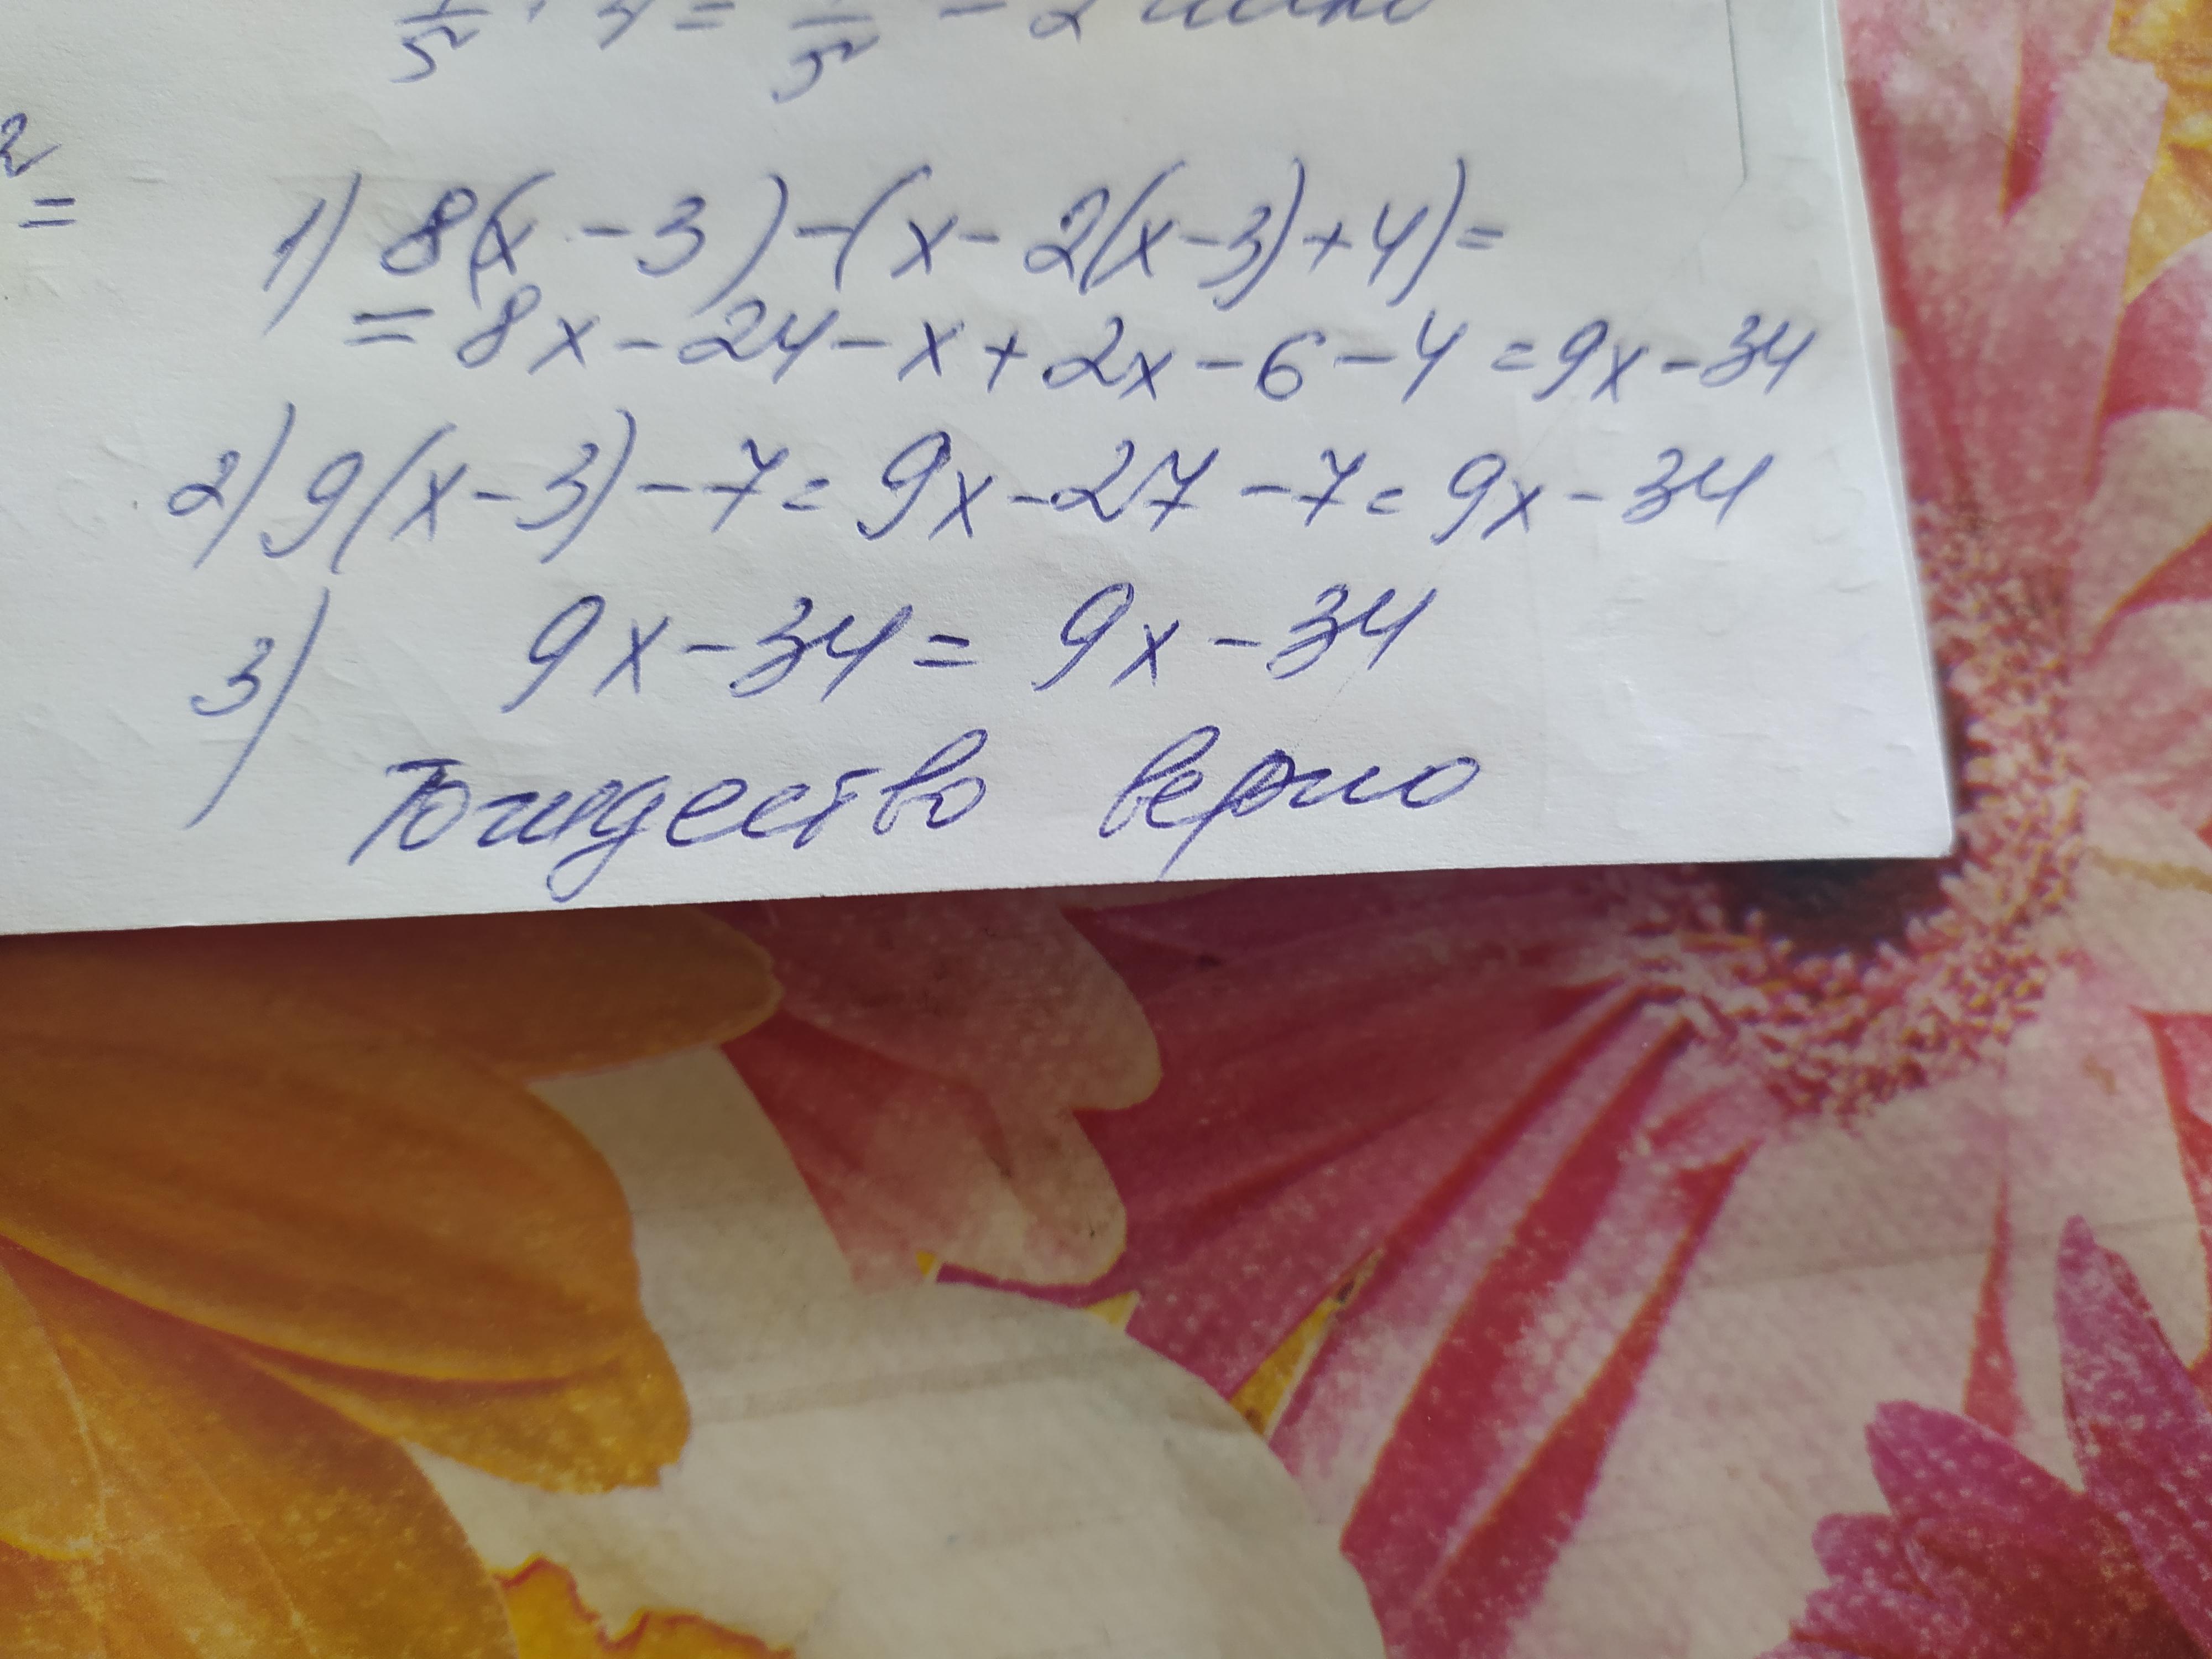 1/5 · 4 = 1/5 - 2
2
=
1) 8(x-3)-(x-2(x-3)+4)=
=8x-24-x+2x-6-4=9x-34
2) 9(x-3)-7=9x-27-7=9x-34
3) 9x-34=9x-34
Тождество верно